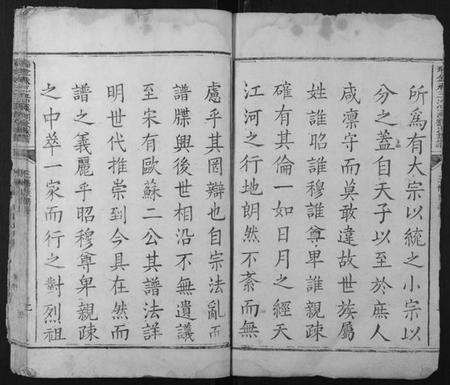 所為有大宗以統之小宗以
分之蓋自天子以至於庶人
咸凜守而莫敢違故世族屬
姓誰昭誰穆誰尊卑誰親疎
確有其倫一如日月之經天
江河之行地朗然不紊而無
慮乎其罔辯也自宗法亂而
譜牒興後世相沿不無遺議
至宋有歐蘇二公其譜法詳
明世代推崇到今具在然而
譜之義麗乎昭穆尊卑親疎
之中萃一家而行之對烈祖